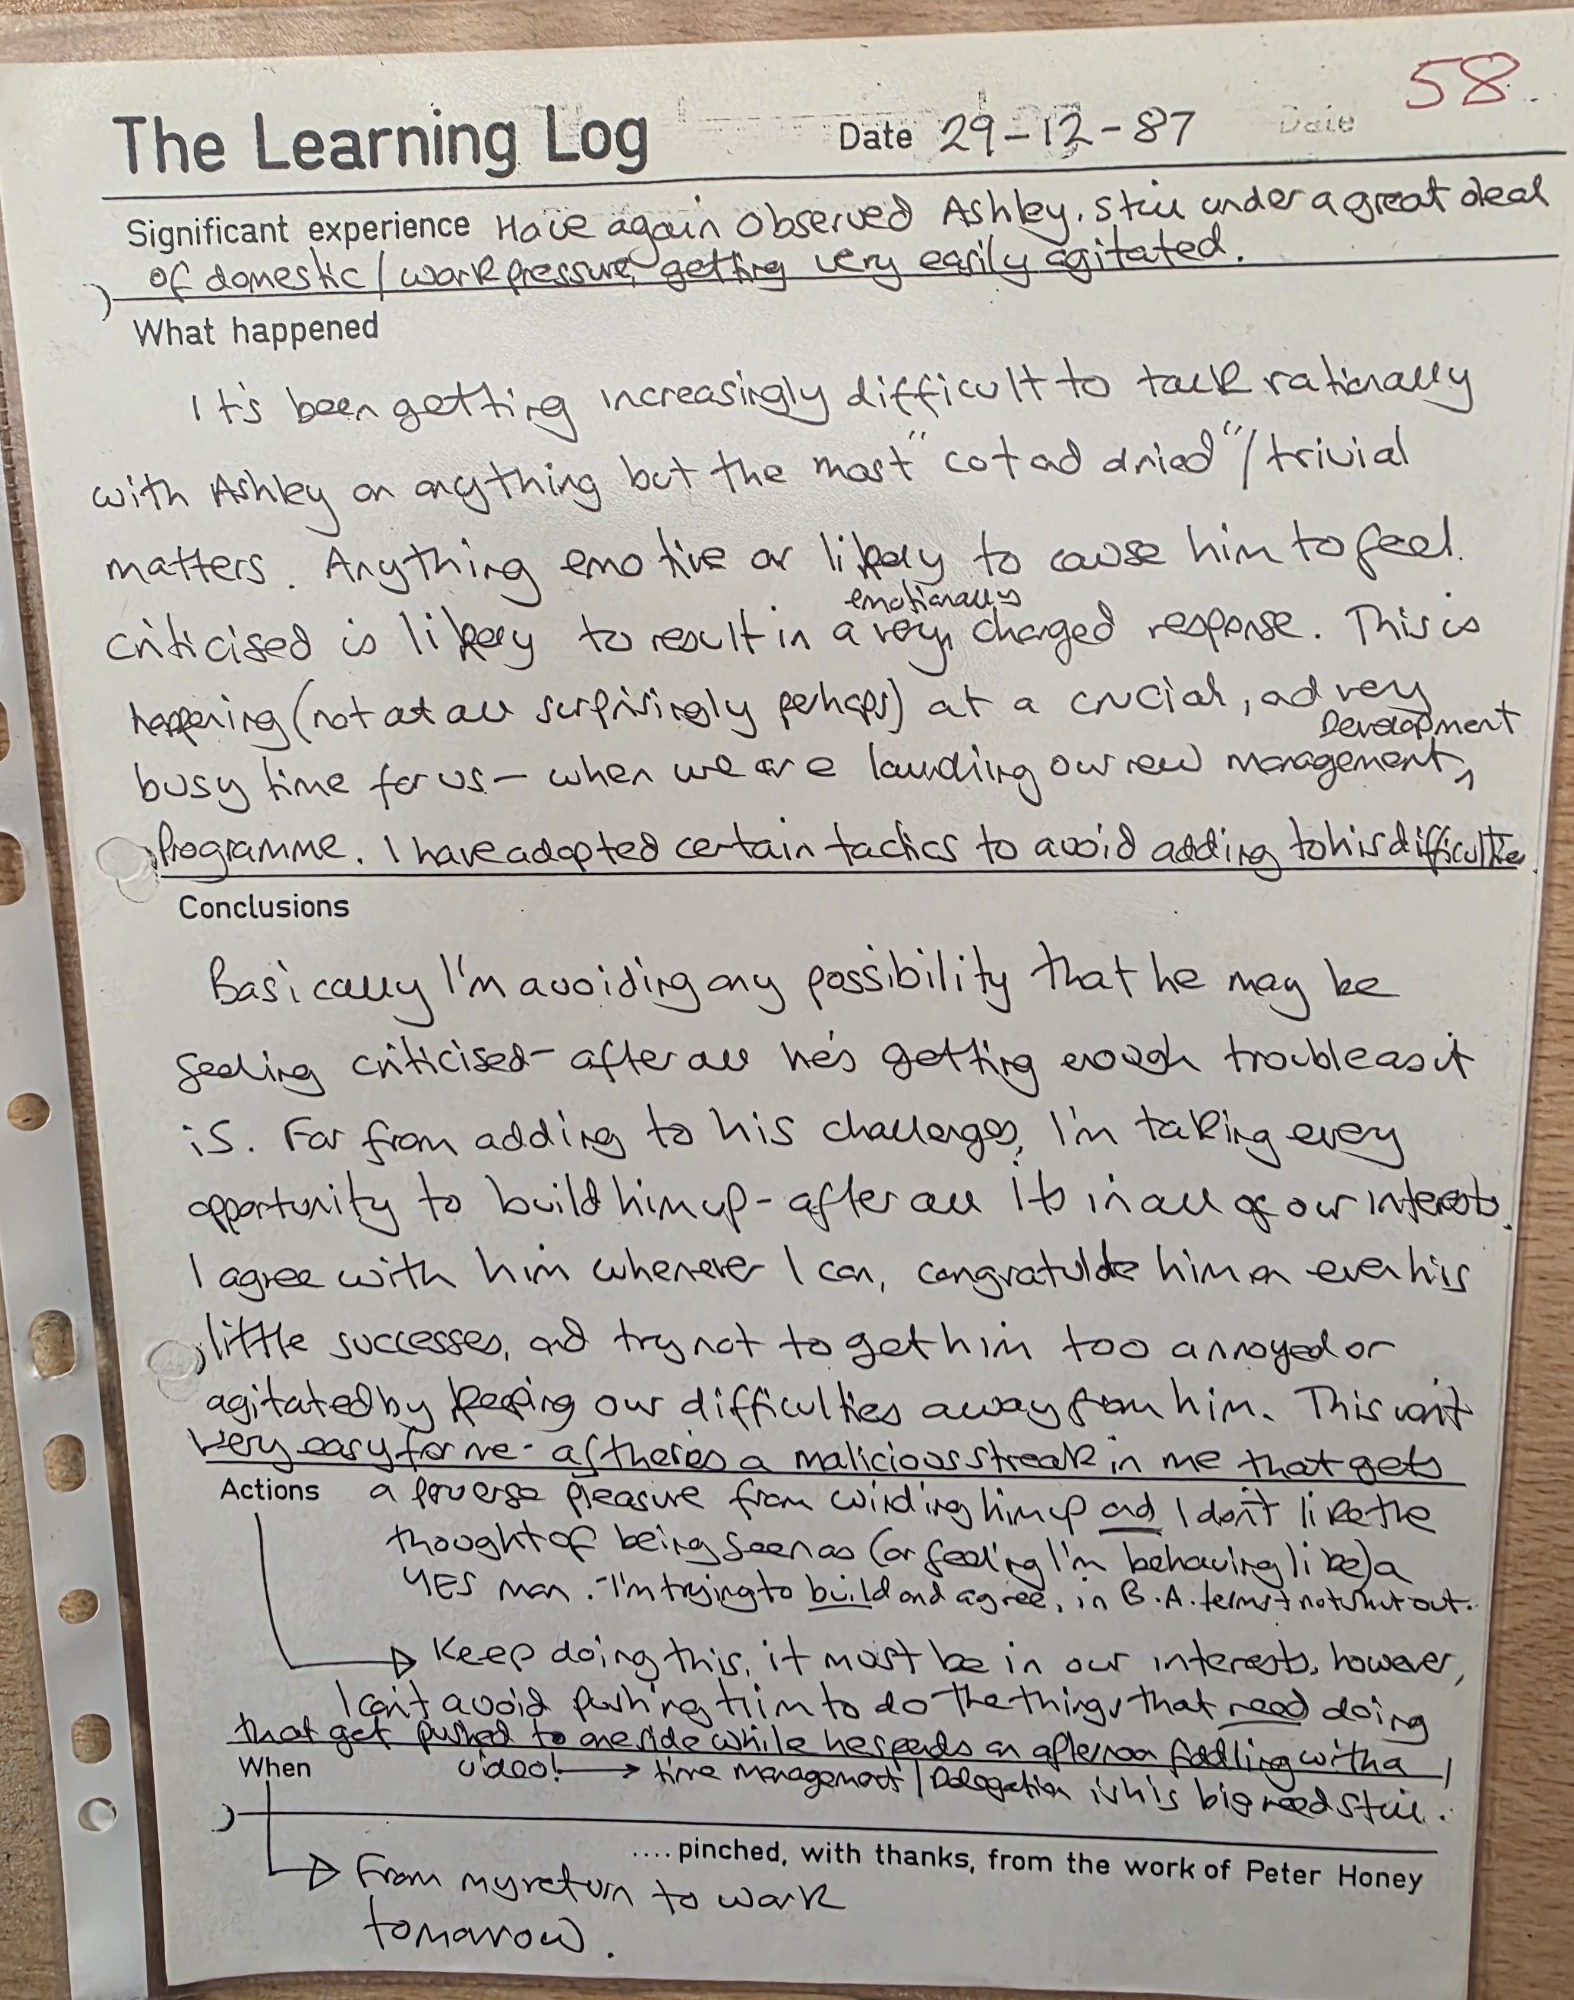 58
The Learning Log Date 29-12-87 Date
Significant experience Have again observed Ashley, still under a great deal
of domestic/work pressure, getting very easily agitated.
What happened
It's been getting increasingly difficult to talk rationally
with Ashley on anything but the most "cot ad dried"/trivial
matters. Anything emotive or likely to cause him to feel
criticised is likely to result in a very emotionally charged response. This is
happening (not at all surprisingly perhaps) at a crucial, ad very
busy time for us - when we are launching our new management Development
Programme. I have adopted certain tactics to avoid adding to his difficulties.
Conclusions
Basically I'm avoiding any possibility that he may be
feeling criticised - after all he's getting enough trouble as it
is. Far from adding to his challenges, I'm taking every
opportunity to build him up - after all it's in all of our interests.
I agree with him whenever I can, congratulate him on even his
little successes, and try not to get him too annoyed or
agitated by keeping our difficulties away from him. This isn't
very easy for me - as there's a malicious streak in me that gets
Actions a perverse pleasure from winding him up and I don't like the
thought of being seen as (or feeling I'm behaving like) a
YES man. - I'm trying to build and agree, in B.A. terms + not shut out.
Keep doing this, it must be in our interests, however,
I can't avoid pushing him to do the things that need doing
that get pushed to one side while he spends an afternoon fiddling with a
When video! → time management/Delegation is his big need still.
.... pinched, with thanks, from the work of Peter Honey
From my return to work
tomorrow.